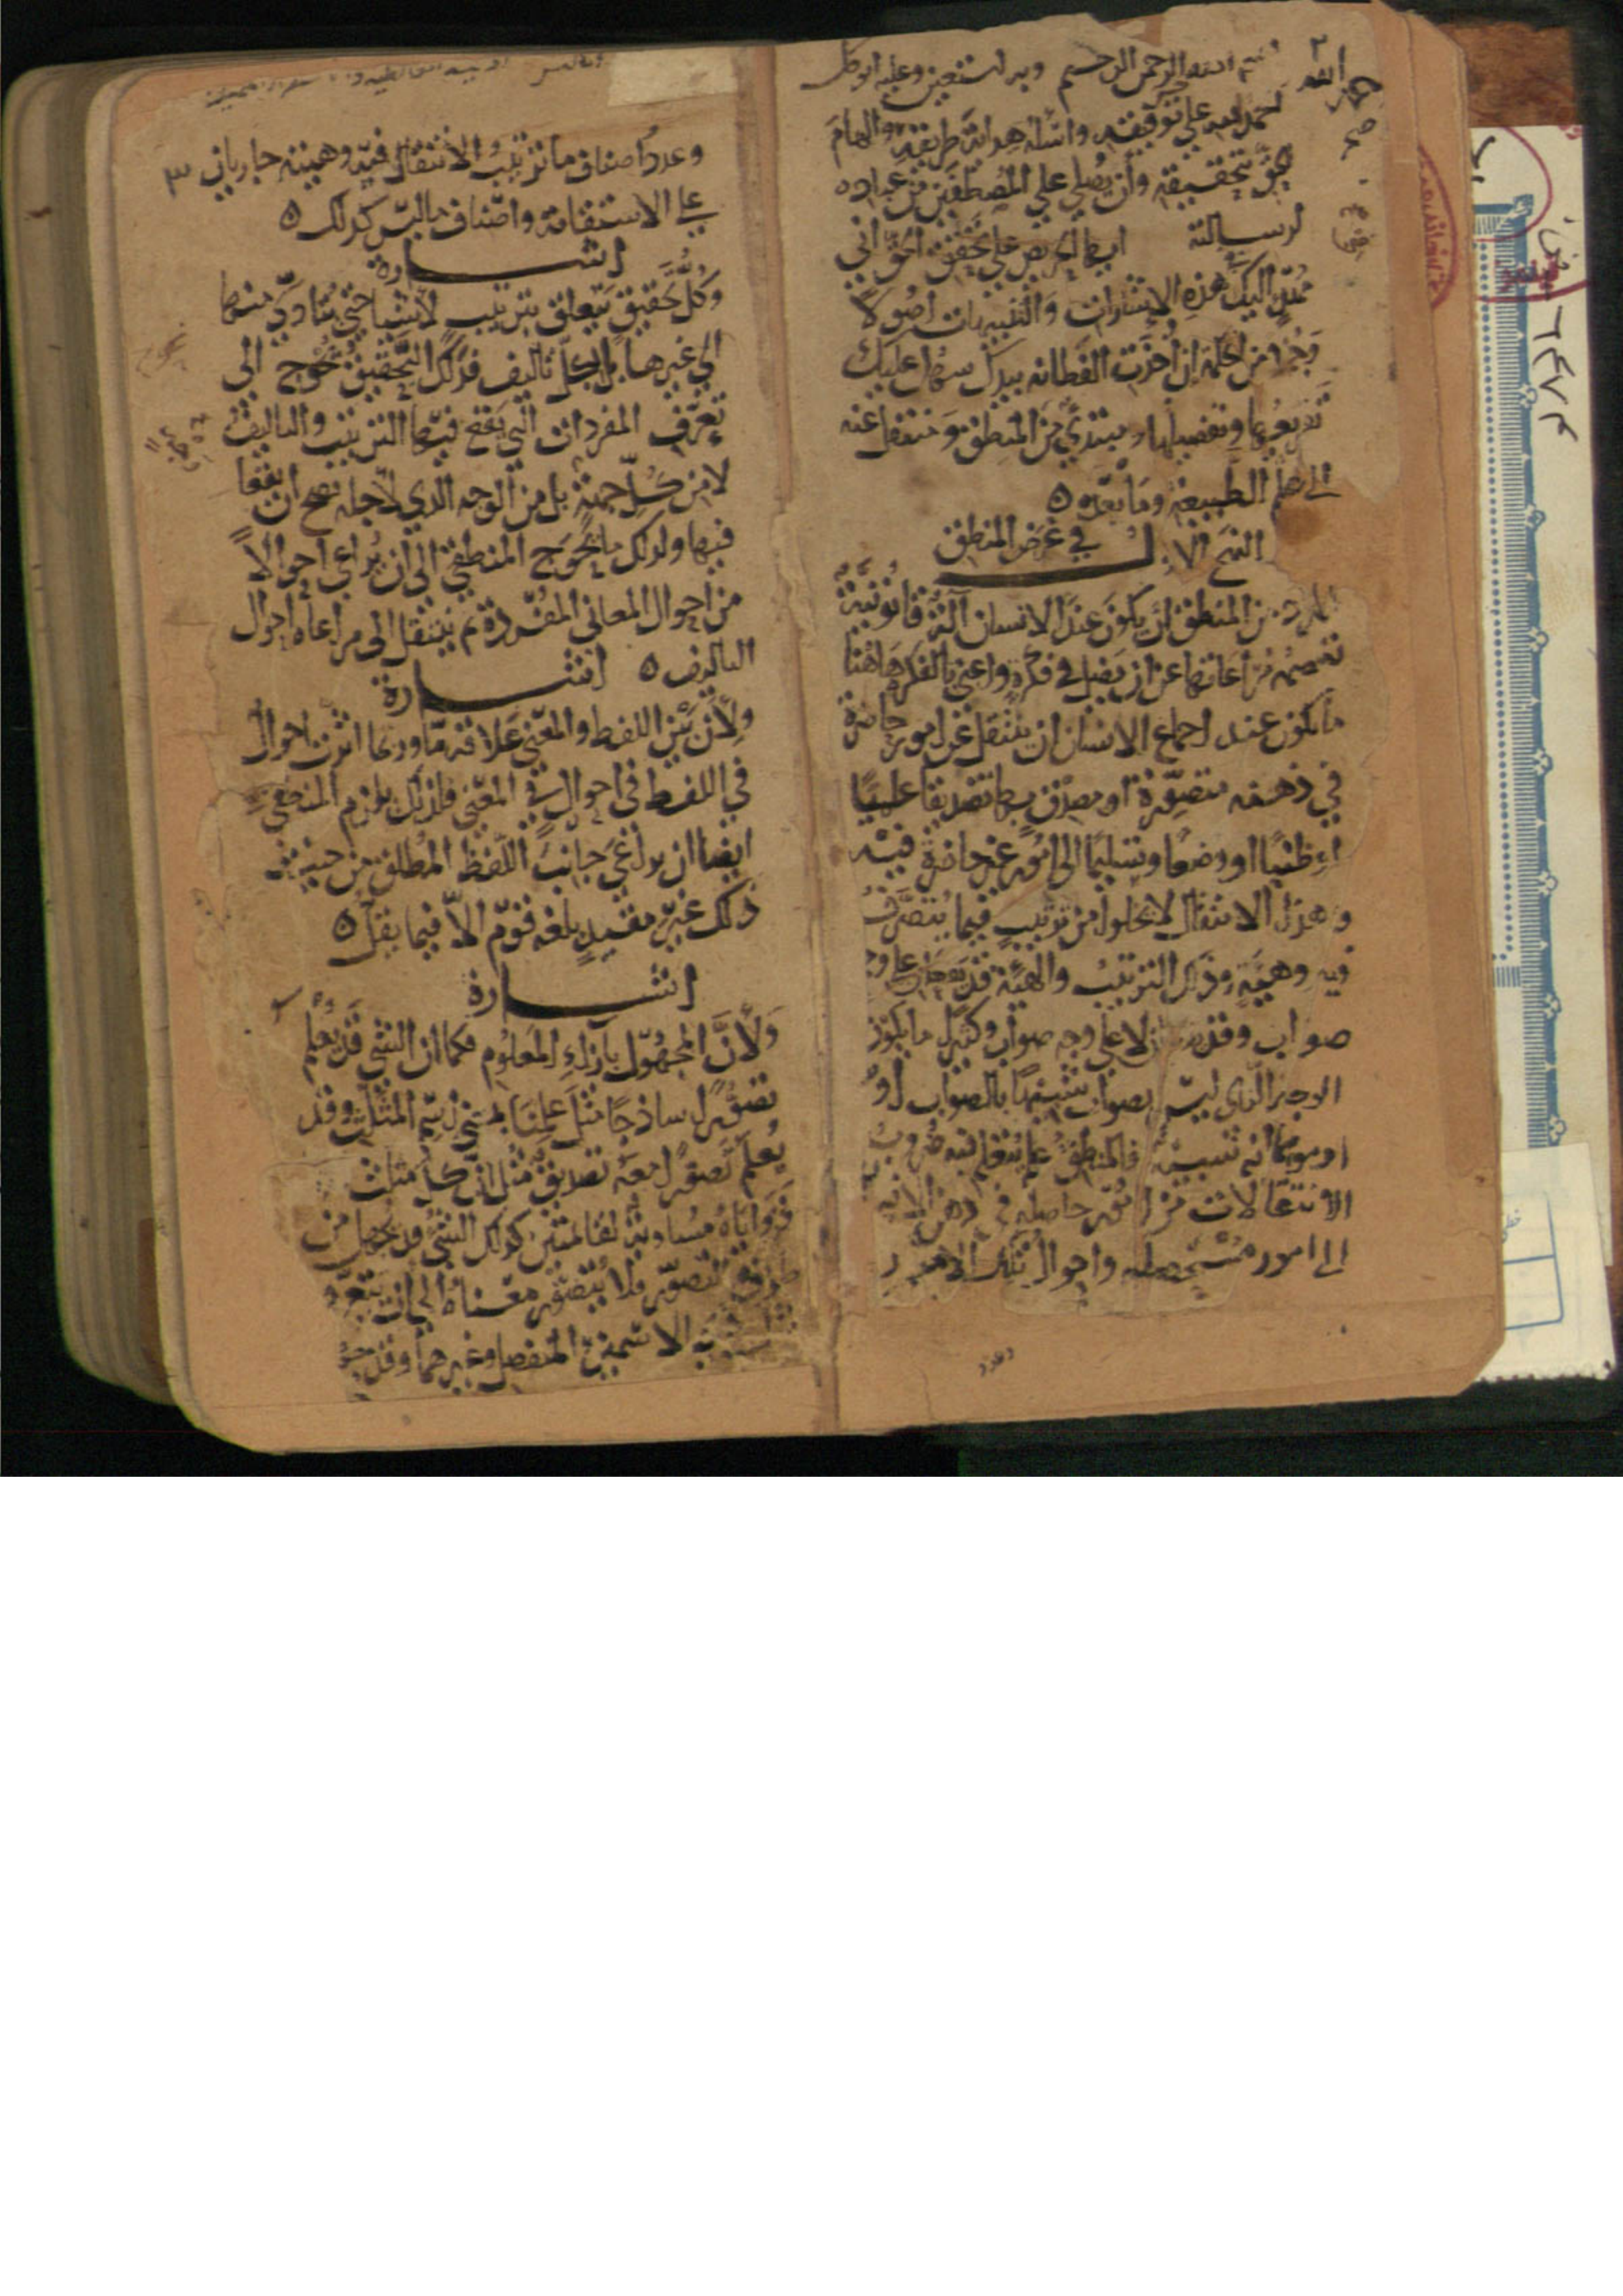 بسم الله الرحمن الرحيم وبه نستعين وعليه اتوكل
احمد الله على توفيقه واسئله هداية طريقه والهام
الحق بتحقيقه وأن يصلي على المصطفين من عباده
لرسالته ايها الحريص على تحقق الحق اني
مهد اليك هذه الاشارات والتنبيهات اصولا
وجملا من الحكمة ان اخذت الفطانه بيدك سهل عليك
تفريعها وتفصيلها ومبتدئ من المنطق ومنتقل عنه
الى علم الطبيعة وما بعده ه
النهج الاول في غرض المنطق
المراد من المنطق ان يكون عند الانسان آلة قانونية
تعصمه مراعاتها عن ان يضل في فكره واعني بالفكر هاهنا
ما يكون عند اجماع الانسان ان ينتقل عن امور حاضرة
في ذهنه متصورة او مصدق بها تصديقا علميا
او ظنيا او وضعا وتسليما الى امور غير حاضرة فيه
وهذا الانتقال لا يخلوا من ترتيب فيما يتصرف
فيه وهيئة وذلك الترتيب والهيئة قد يقعان على وجه
صواب وقد يقعان لا على وجه صواب وكثيرا ما يكون
الوجه الذي ليس بصواب شبيها بالصواب او
او موهما انه شبيه فالمنطق علم يتعلم فيه ضروب
الانتقالات من امور حاصله في ذهن الانسان
الى امور مستحصله واحوال تلك الامور
وعدد
٣
وعدد اصناف ما ترتيب الانتقال فيه وهيئته جاريان
على الاستقامة واصناف ما ليس كذلك ه
اشارة
وكل تحقيق يتعلق بترتيب لاشياء حتى يتادى منها
الى غيرها بل بكل تاليف فذلك التحقيق يحوج الى
تعرف المفردات التي يقع فيها الترتيب والتاليف
لا من كل جهة بل من الوجه الذي لاجله يصح ان يقعا
فيها ولذلك ما يحوج المنطقي الى ان يراعي احوالا
من احوال المعاني المفردة ثم ينتقل الى مراعاة احوال
التاليف ه اشارة
ولأن بين اللفظ والمعنى علاقة ما وربما اثرت احوال
في اللفظ في احوال في المعنى فلذلك يلزم المنطقي
ايضا ان يراعي جانب اللفظ المطلق من حيث
ذلك غير مقيد بلغة قوم الا فيما يقل ه
اشارة
ولأن المجهول بازاء المعلوم فكما ان الشي قد يعلم
تصورا ساذجا مثل علمنا بمعنى اسم المثلث وقد
يعلم تصورا معه تصديق مثل ان كل مثلث
فزواياه مساوية لقائمتين كذلك الشي قد يجهل من
طريق التصور فلا يتصور معناه الى ان يتعرف
الاسمين المنفصل وغيرهما وقد